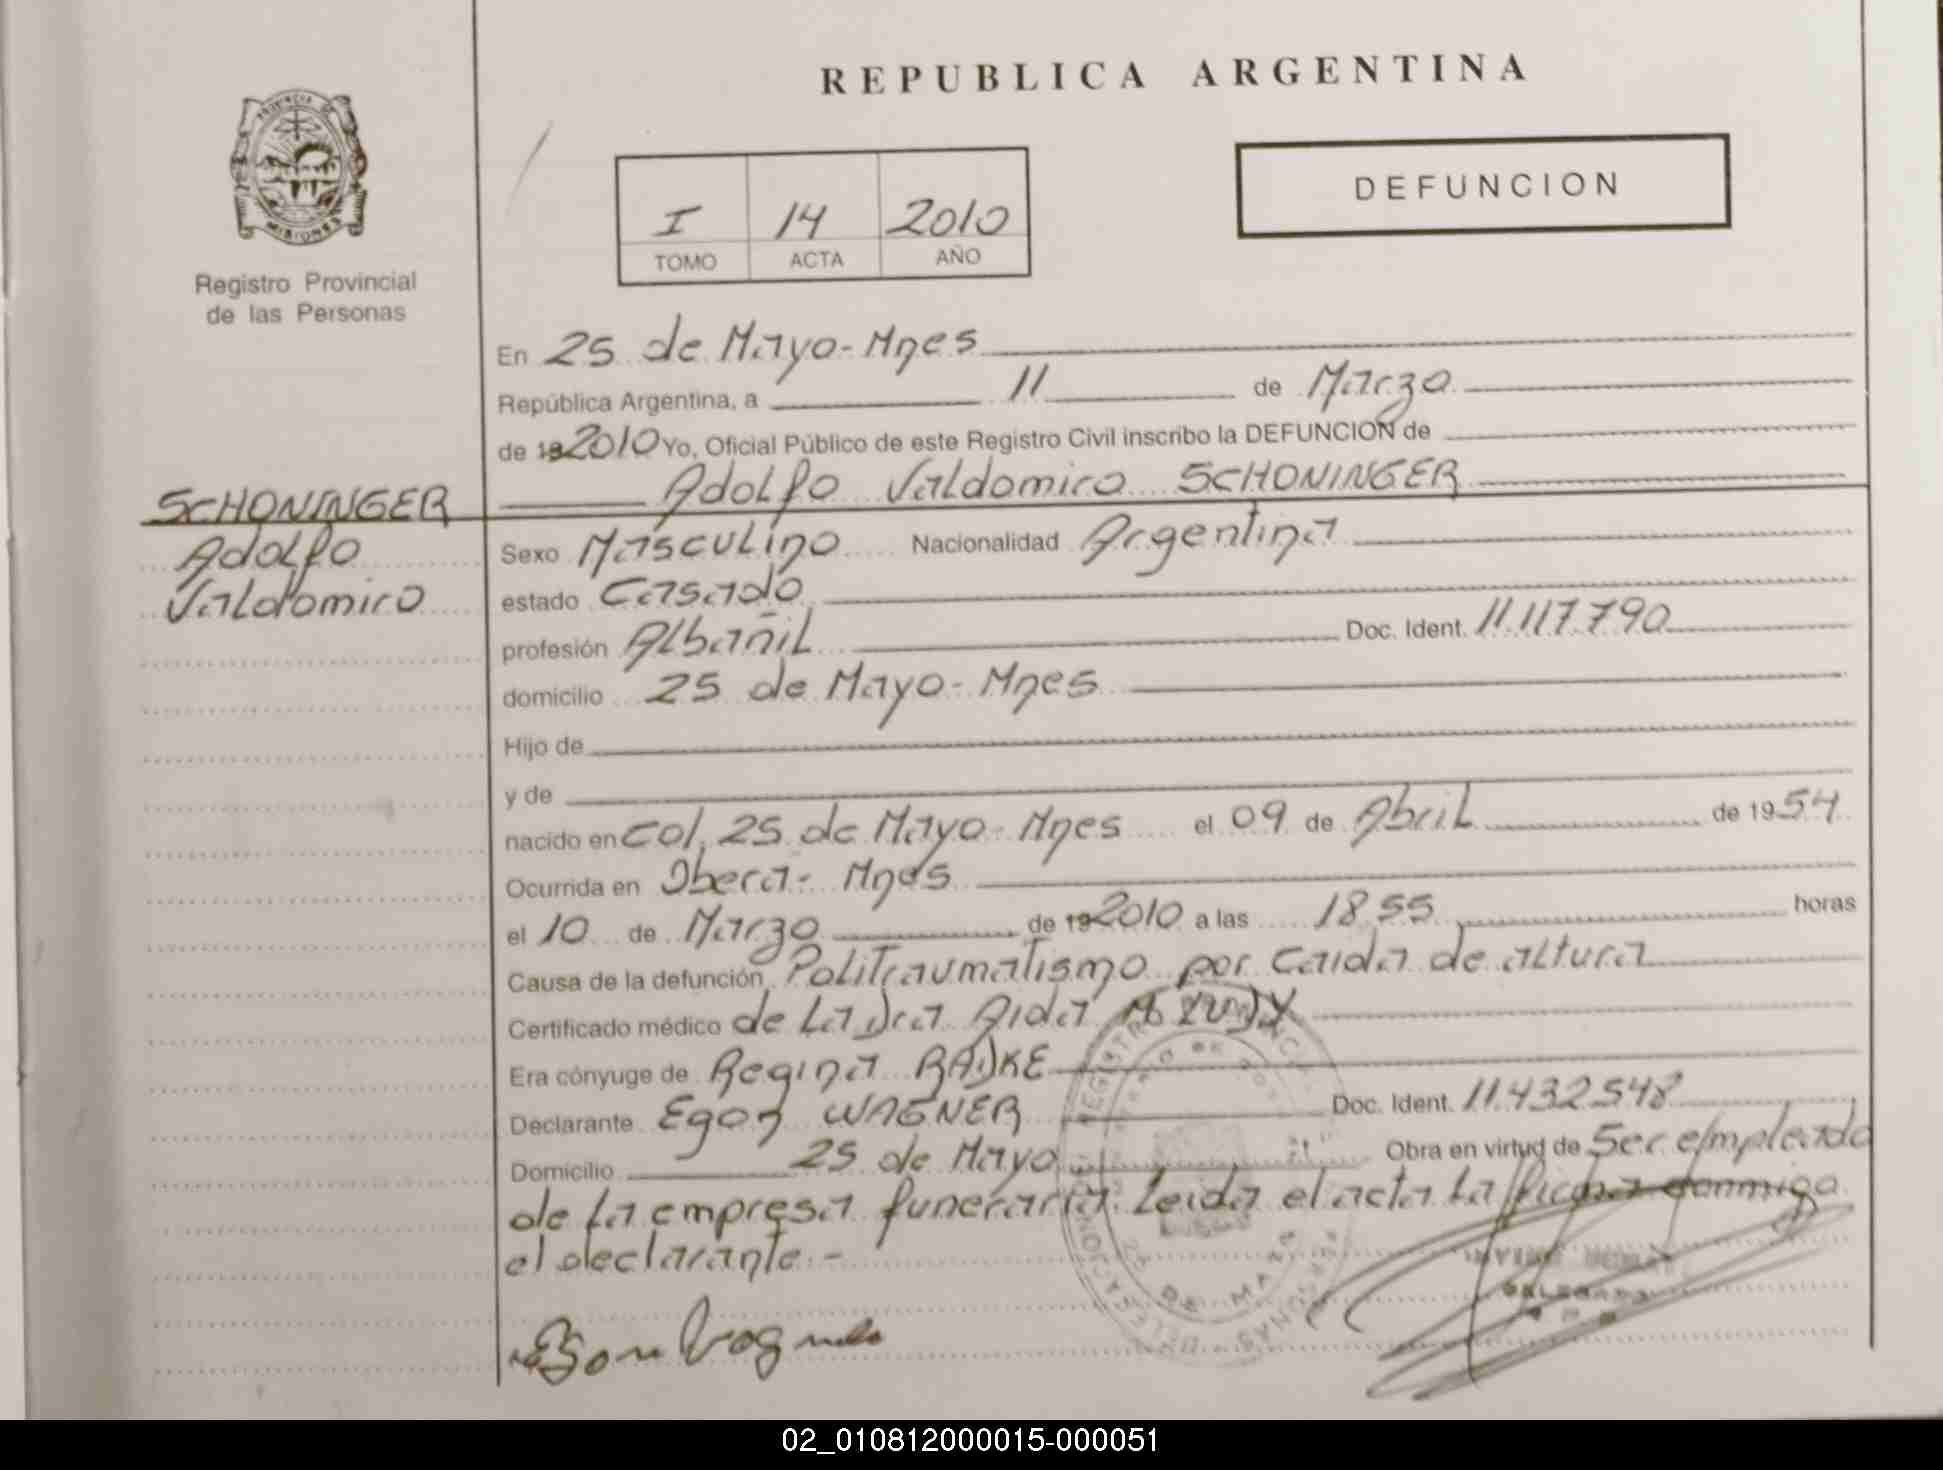 REPUBLICA ARGENTINA
PROVINCIA DE
MISIONES
Registro Provincial
de las Personas
I 14 2010
TOMO ACTA AÑO
DEFUNCION
En 25 de Mayo-Mnes
República Argentina, a 11 de Marzo
de 192010 Yo, Oficial Público de este Registro Civil inscribo la DEFUNCION de
Adolfo Valdomiro SCHONINGER
SCHONINGER
Adolfo
Valdomiro
Sexo Masculino Nacionalidad Argentina
estado Casado
profesión Albañil Doc. Ident. 11.117.790
domicilio 25 de Mayo-Mnes
Hijo de
y de
nacido en Col. 25 de Mayo-Mnes el 09 de Abril de 1954
Ocurrida en Obera-Mnes
el 10 de Marzo de 192010 a las 18,55 horas
Causa de la defunción Politraumatismo por caida de altura
Certificado médico de La Dra Aida
Era cónyuge de Regina RADKE
Declarante Egon WAGNER Doc. Ident. 11.432548
Domicilio 25 de Mayo Obra en virtud de Ser empleado
de La empresa funeraria. Leida el acta La firma conmigo
el declarante.-
Egon Wagner
02_010812000015-000051